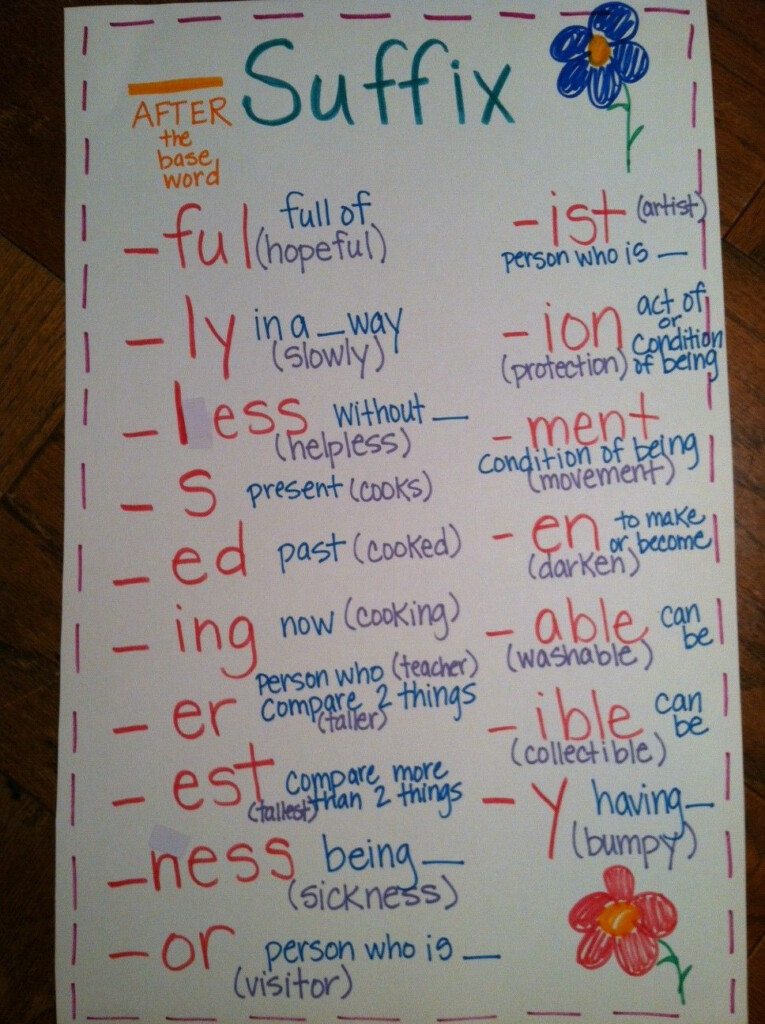 Suffix
AFTER
the
base
word
-ful full of
(hopeful)
-ly in a _ way
(slowly)
-less without _
(helpless)
-s present (cooks)
-ed past (cooked)
-ing now (cooking)
-er person who (teacher)
compare 2 things
(taller)
-est compare more
(tallest) than 2 things
-ness being _
(sickness)
-or person who is _
(visitor)
-ist (artist)
person who is _
-ion act of
or
condition
(protection) of being
-ment
condition of being
(movement)
-en to make
or become
(darken)
-able can
be
(washable)
-ible can
be
(collectible)
-y having _
(bumpy)